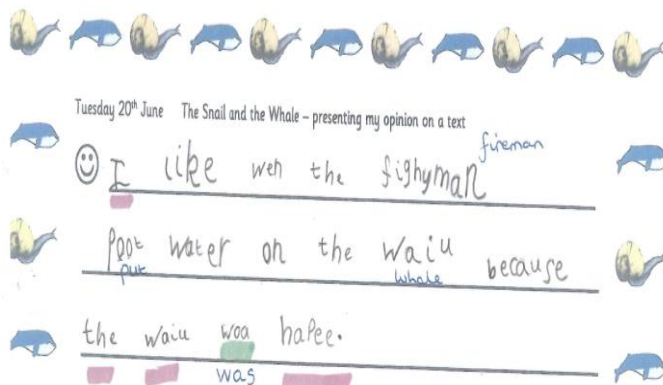 Tuesday 20th June The Snail and the Whale – presenting my opinion on a text
fireman
I like weh the fighyman
Poot water on the waiu because
put whale
the waiu woa hapee.
was